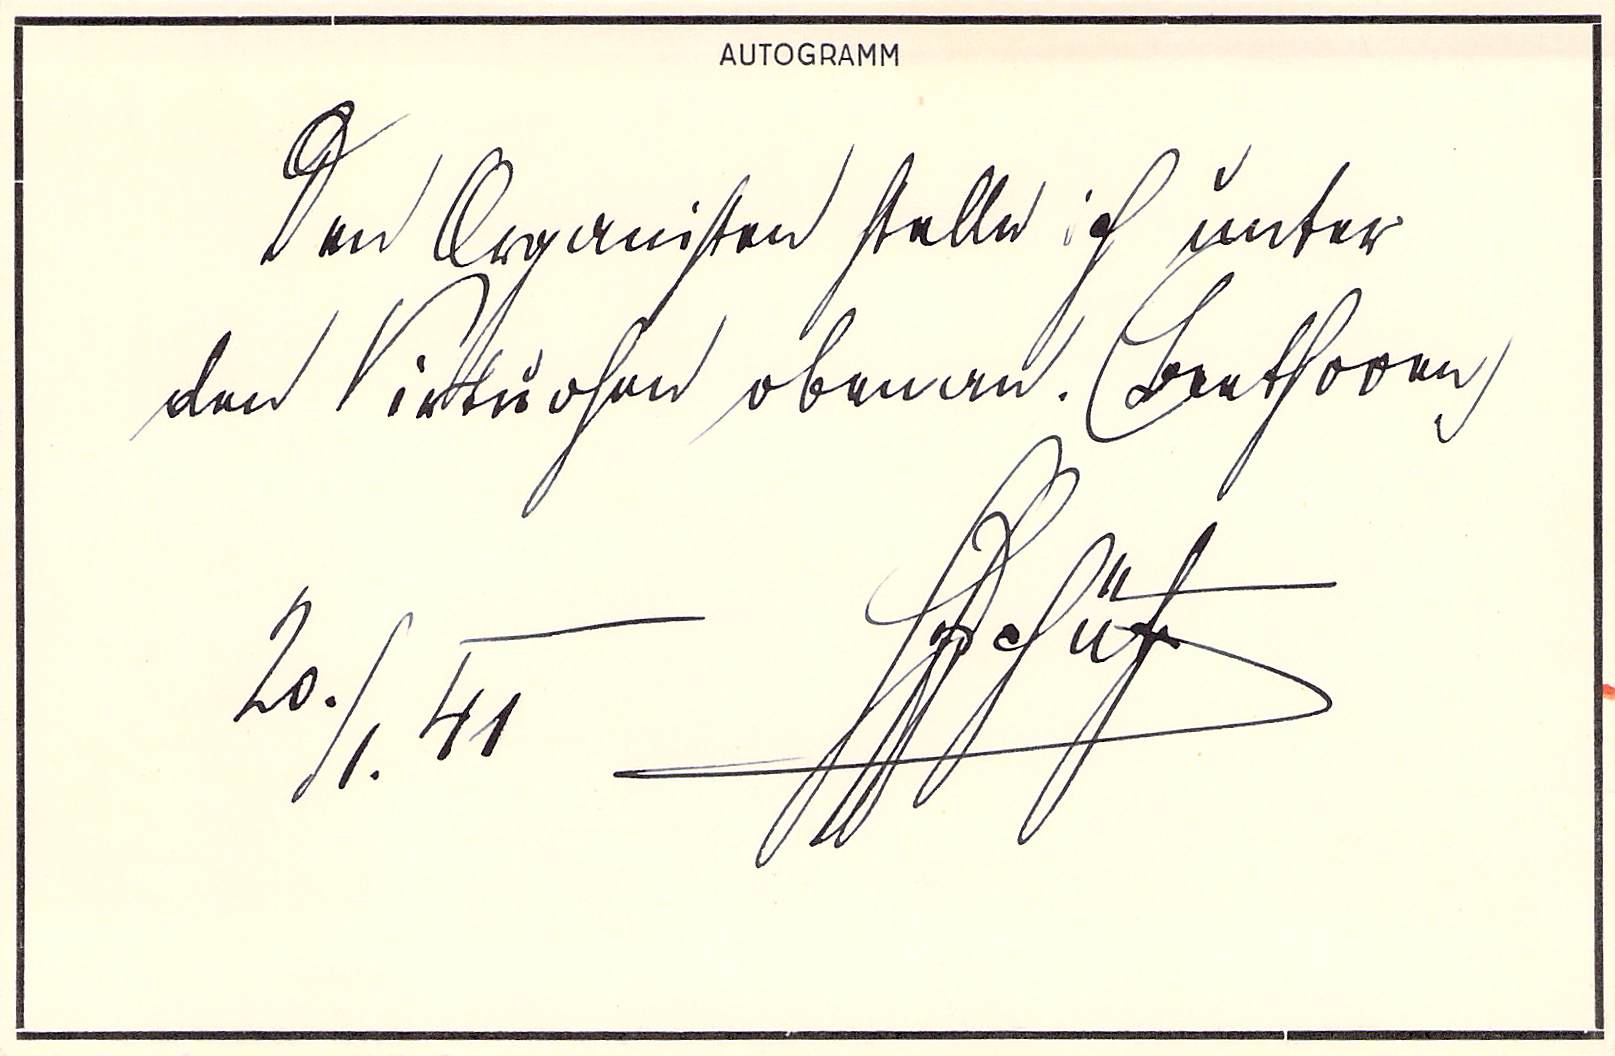 AUTOGRAMM
Den Organisten stelle ich unter
den Virtuosen obenan. (Beethoven)
20./1. 41